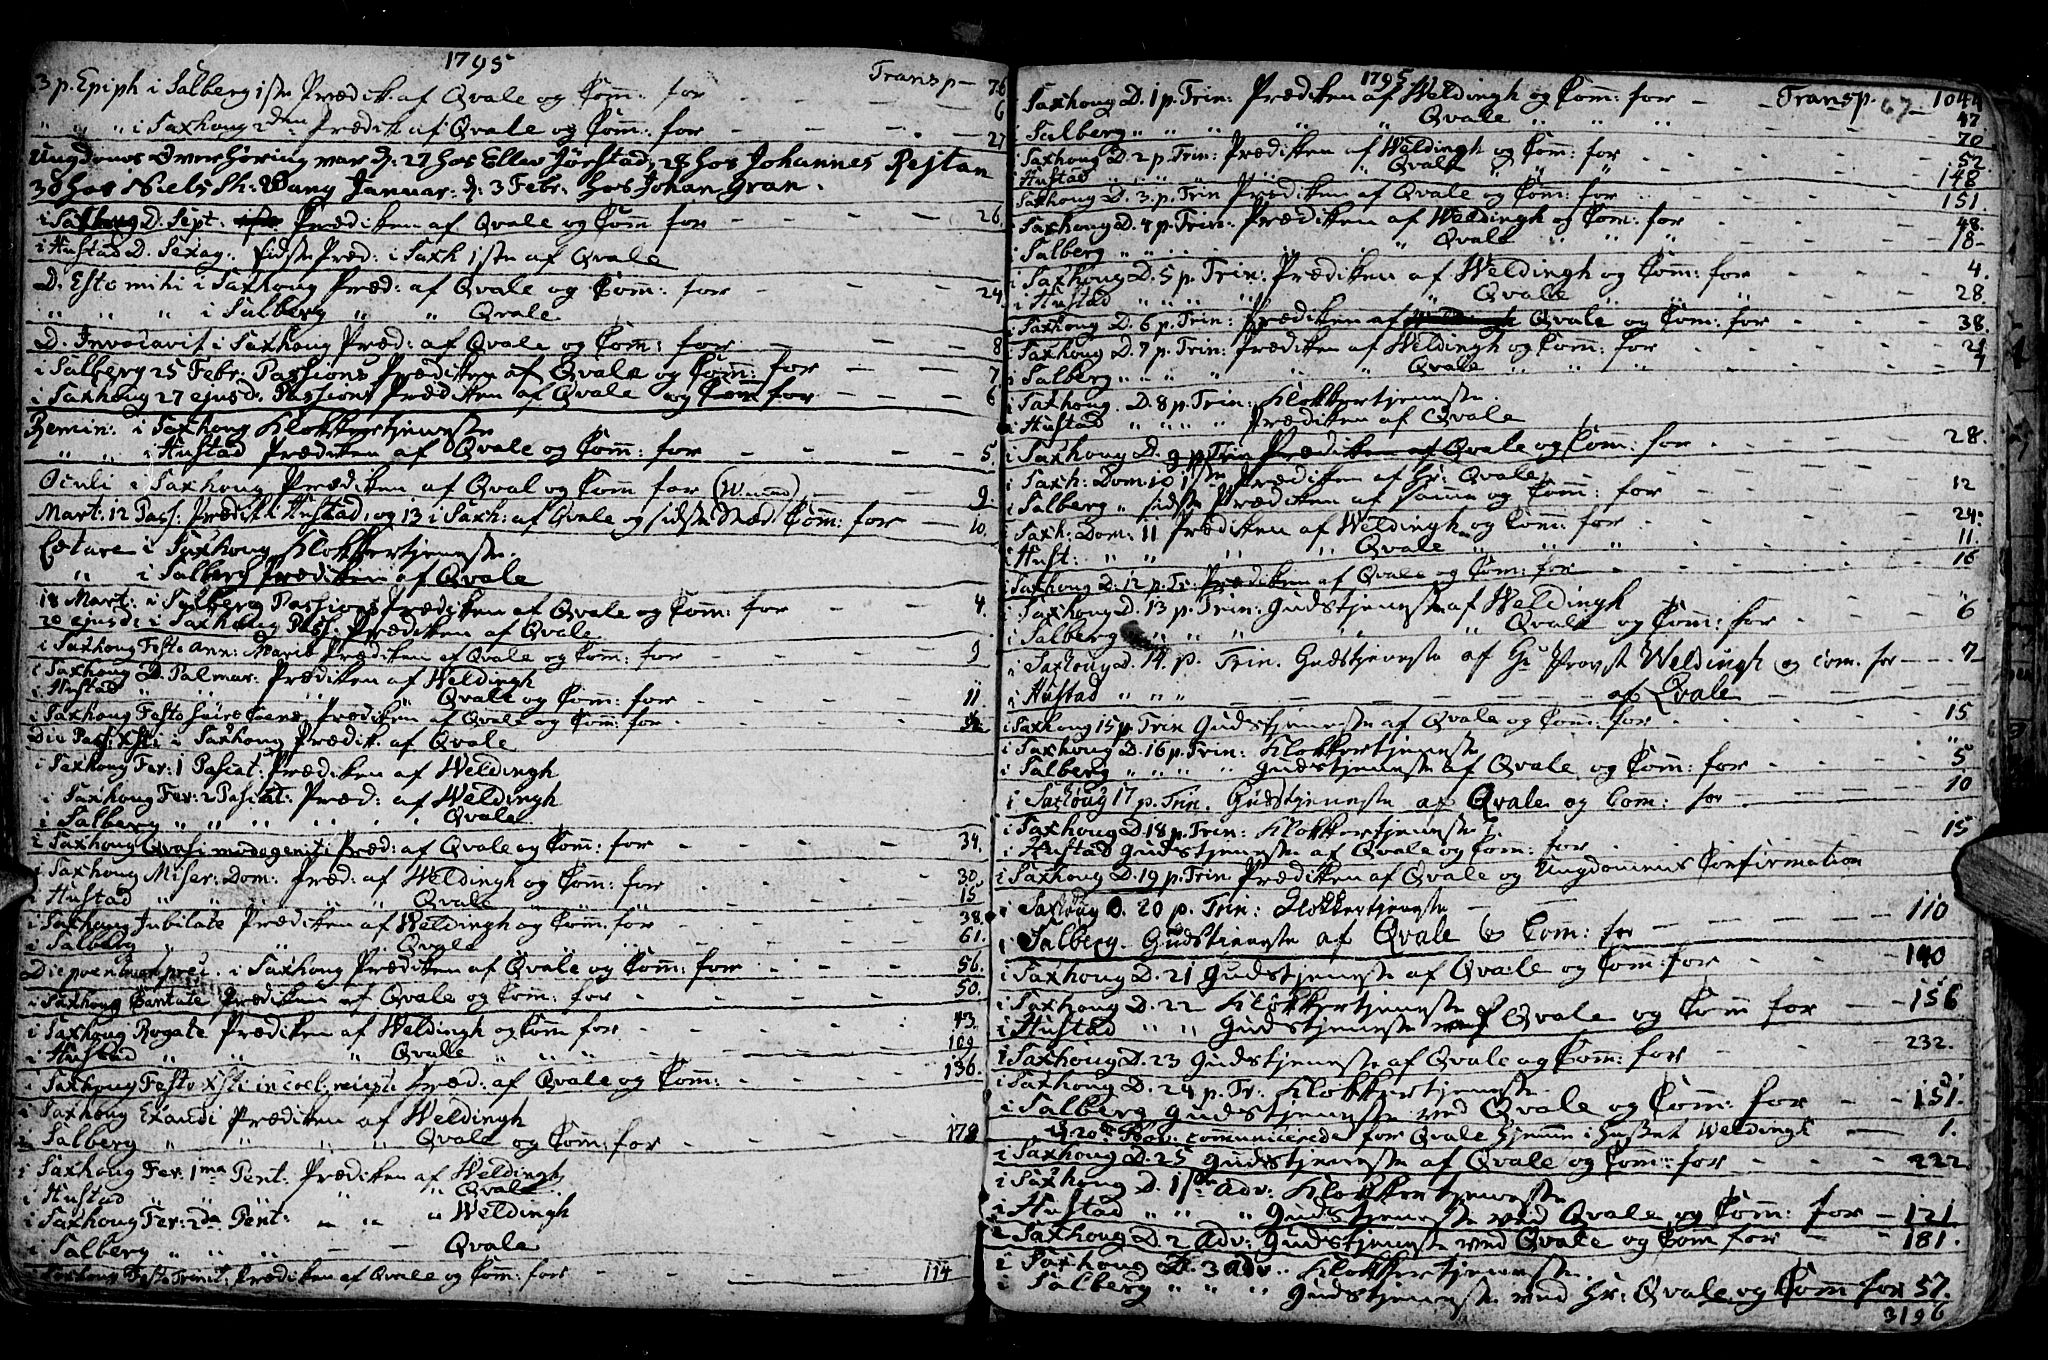 1795
3 p. Epiph i Salberg 1ste Prædik. af Qvale og Com̄: for Transp — 76
" " " i Saxhoug 2den Prædik af Qvale og Com̄: for — 6
27
Ungdoms Overhöring var d: 27 hos Ellev Jörstad, 28 hos Johannes Rejtan
30 hos Niels Sh: Wang Januar: d: 3 Febr: hos Johan Gran.
i Saxhoug D. Sept: Prædiken af Qvale og Com̄ for — 26
i Hustad D. Sexag: sidste Præd: i Saxh 1ste af Qvale
D. Esto mihi i Saxhoug Præd: af Qvale og Com̄: for — 24
" " " i Salberg " " Qvale
D. Invocavit i Saxhoug Præd: af Qvale og Com̄: for — 8
i Salberg 25 Febr: Passions Prædiken af Qvale og Com̄: for — 7
i Saxhoug 27 ejusd: Passions Prædiken af Qvale og Com̄ for — 6
Remin: i Saxhoug Klokkertjeneste
" " i Hustad Prædiken af Qvale og Com̄: for — 5
Oculi i Saxhoug Prædiken af Qval og Com̄ for — 9
Mart: 12 Pass: Prædik i Hustad, og 13 i Saxh: af Qvale og sidste Sted Com̄: for — 10.
Lætare i Saxhoug Klokkertjeneste.
" i Salberg Prædiken af Qvale
18 Mart: i Salberg Passions Prædiken af Qvale og Com̄: for — 4.
20 ejusd: i Saxhoug Pass: Prædiken af Qvale
i Saxhoug Festo Ann: Mariæ Prædiken af Qvale og Com̄: for — 9
i Saxhoug D. Palmar: Prædiken af Weldingh
i Hustad " " " " Qvale og Com̄: for — 11.
i Saxhoug Festo Sacræ Coenæ Prædiken af Qvale og Com̄: for
Die Pass: Xsti i Saxhoug Prædik. af Qvale
i Saxhoug Fer: 1 Pascat: Prædiken af Weldingh
i Saxhoug Fer: 2 Pascat: Præd: af Weldingh
i Salberg " " " " " " Qvale
i Saxhoug Qvasimodogeniti Præd: af Qvale og Com̄: for — 34.
i Saxhoug Miser: Dom: Præd: af Weldingh og Com̄: for — 30.
i Hustad " " " " Qvale " " " — 15
i Saxhoug Jubilate Prædiken af Weldingh og Com̄: for — 38
i Salberg " " " Qvale " " " — 61.
Die poenit: i Saxhoug Prædiken af Qvale og Com̄: for — 56.
i Saxhoug Cantate Prædiken af Qvale og Com̄: for — 50.
i Saxhoug Rogate Prædiken af Weldingh og Com̄ for — 43.
i Hustad " " " Qvale " " " — 109
i Saxhoug Festo Xsti in coel: recept: Præd: af Qvale og Com̄: — 136.
i Saxhoug Exaudi Prædiken af Weldingh
i Salberg " " " Qvale og Com̄: for — 178
i Saxhoug Fer: 1ma Pent: Prædiken af Weldingh
i Hustad " " " " " Qvale
i Saxhoug Fer: 2da Pent: " " " Weldingh
i Salberg " " " — — Qvale
i Saxhoug Festo Trinit: Prædiken af Qvale og Com̄: for — 114
1795 67
i Saxhoug D. 1 p. Trin: Prædiken af Weldingh og Com̄: for — Transp. 1044
i Salberg " " " " " Qvale " " " — 47
70
i Saxhoug D. 2 p. Trin: Prædiken af Weldingh og Com̄: for — 52
i Hustad " " " " " Qvale " " " — 148
i Saxhoug D. 3. p. Trin Prædiken af Qvale og Com̄: for — 151.
i Saxhoug D. 4 p. Trin: Prædiken af Weldingh og Com̄: for — 48.
i Salberg " " " " Qvale " " " — 18 -
i Saxhoug D. 5 p. Trin: Prædiken af Weldingh og Com̄: for — 4.
i Hustad " " " " " Qvale " " " — 28.
i Saxhoug D. 6 p. Trin: Prædiken af Qvale og Com̄: for — 38.
i Saxhoug D. 7 p. Trin: Prædiken af Weldingh og Com̄: for — 21
i Salberg " " " " " " Qvale " " " — 7
i Saxhoug. D. 8 p. Trin: Klokkertjeneste.
i Hustad " " " " Prædiken af Qvale
i Saxhoug D. 9 p. Trin Prædiken af Qvale og Com̄: for — 28.
i Saxh: Dom: 10 1ste Prædiken af Hr: Qvale
i Salberg " sidste Prædiken af samme og Com̄: for — 12
i Saxh: Dom: 11 Prædiken af Weldingh og Com̄: for — 24:
i Hust: " " " " Qvale " " " — 11.
i Saxhoug D. 12 p. Tr. Prædiken af Qvale og Com̄: for — 16
i Saxhoug D. 13 p. Trin: Gudstjeneste af Weldingh
i Salberg " " " " Qvale og Com̄: for — 6
i Saxhoug D. 14. p. Trin. Gudstjeneste af Hr Provst Weldingh og Com. for — 7
i Hustad " " " — — — — — af Qvale
i Saxhoug 15 p. Trin Gudstjeneste af Qvale og Com̄: for — 15
i Saxhoug D. 16 p. Trin: Klokkertjeneste
i Salberg " " " " Gudstjeneste af Qvale og Com̄: for — 5
i Saxhoug 17 p. Trin. Gudstjeneste af Qvale og Com: for — 10
i Saxhoug D. 18 p. Trin: Klokkertjeneste.
i Hustad Gudstjeneste af Qvale og Com̄: for — 15
i Saxhoug D. 19 p. Trin Prædiken af Qvale og Ungdommens Confirmation
i Saxhoug D. 20 p. Trin: Klokkertjeneste
i Salberg. Gudstjeneste af Qvale og Com: for — 110
i Saxhoug D. 21 Gudstjeneste af Qvale og Com̄: for — 140
i Saxhoug D. 22 Klokkertjeneste
i Hustad " " Gudstjeneste ved Qvale og Com̄ for — 156
i Saxhoug D. 23 Gudstjeneste af Qvale og Com̄: for — 232.
i Saxhoug D. 24 p. Tr: Klokkertjeneste
i Salberg Gudstjeneste ved Qvale og Com̄: for — 151.
d 20de Nov: communicerede for Qvale hjemme i Huset Weldingh — 1.
i Saxhoug D. 25 Gudstjeneste af Qvale og Com̄: for — 222
i Saxhoug D. 1ste Adv: Klokkertjeneste
i Hustad " " " Gudstjeneste ved Qvale og Com̄: for — 121
i Saxhoug D. 2 Adv: Gudstjeneste ved Qvale og Com̄ for — 181.
i Saxhoug D. 3 Adv: Klokkertjeneste.
i Salberg " " " Gudstjeneste ved Hr: Qvale og Com̄ for 57.
3196